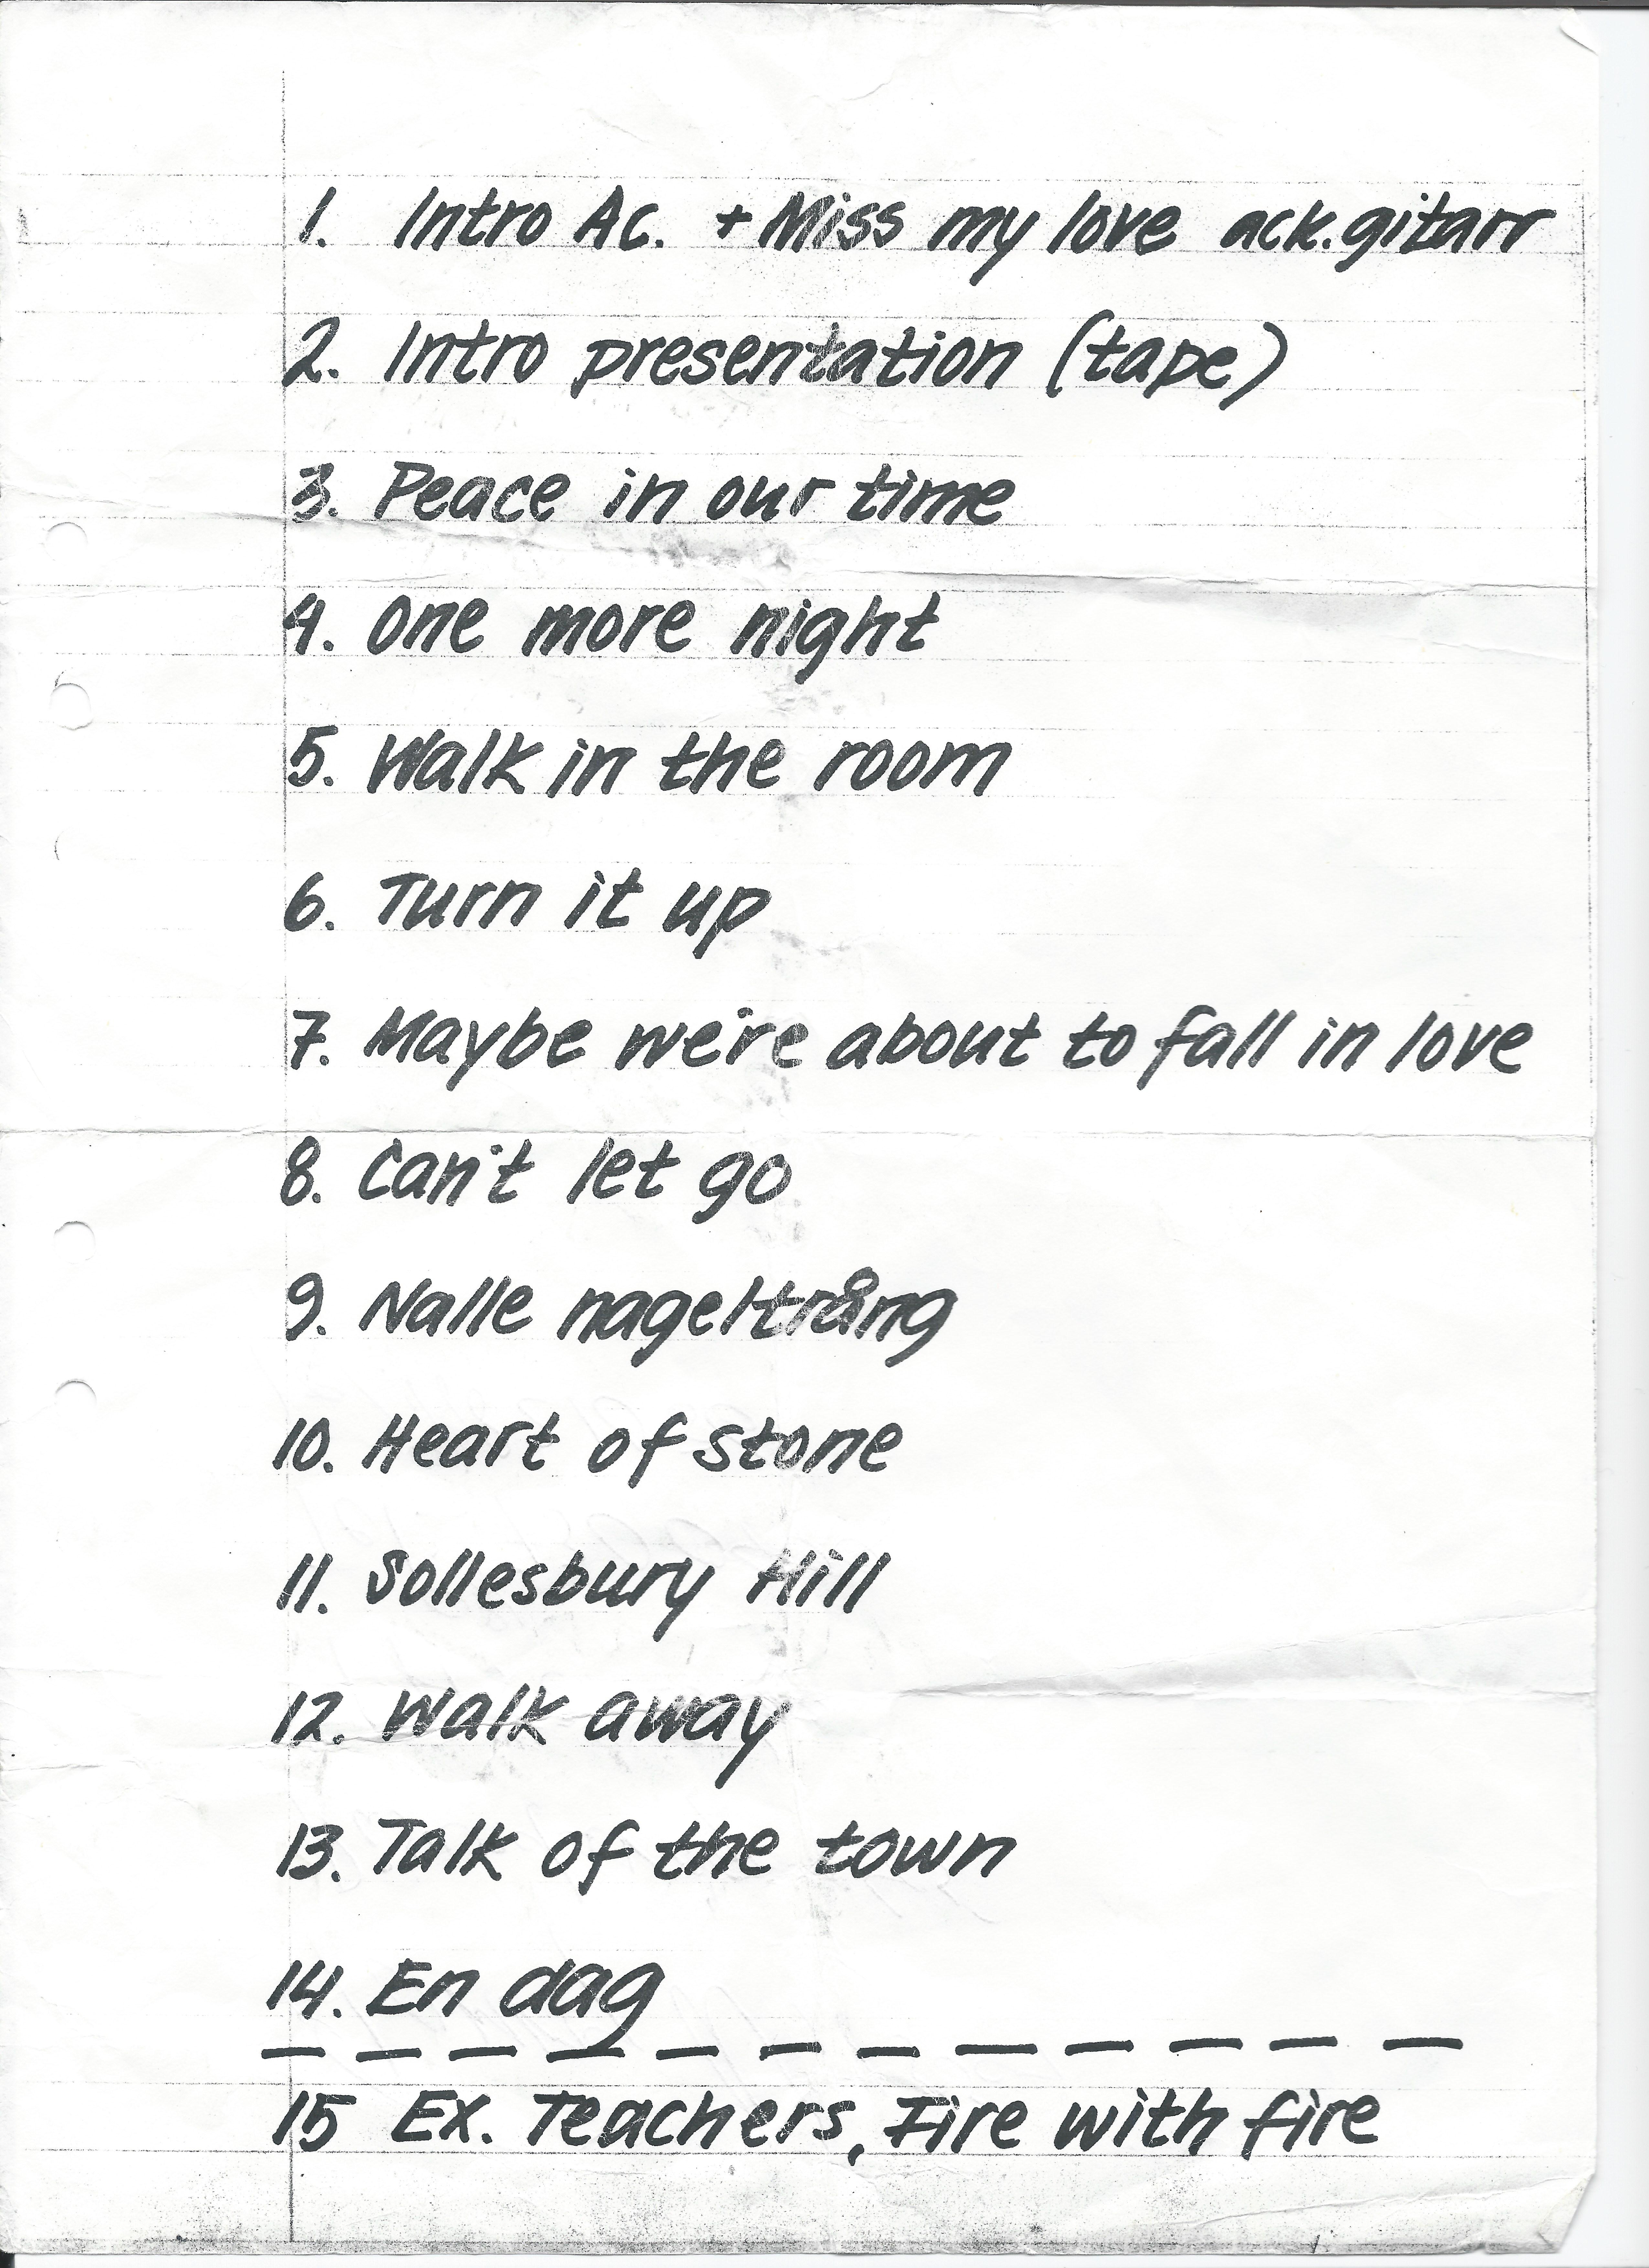 1. Intro Ac. + Miss my love ack.gitarr
2. Intro presentation (tape)
3. Peace in our time
4. One more night
5. Walk in the room
6. Turn it up
7. Maybe we're about to fall in love
8. Can't let go
9. Nalle nageltrång
10. Heart of stone
11. Sollesbury Hill
12. Walk away
13. Talk of the town
14. En dag
15 Ex. Teachers, Fire with fire